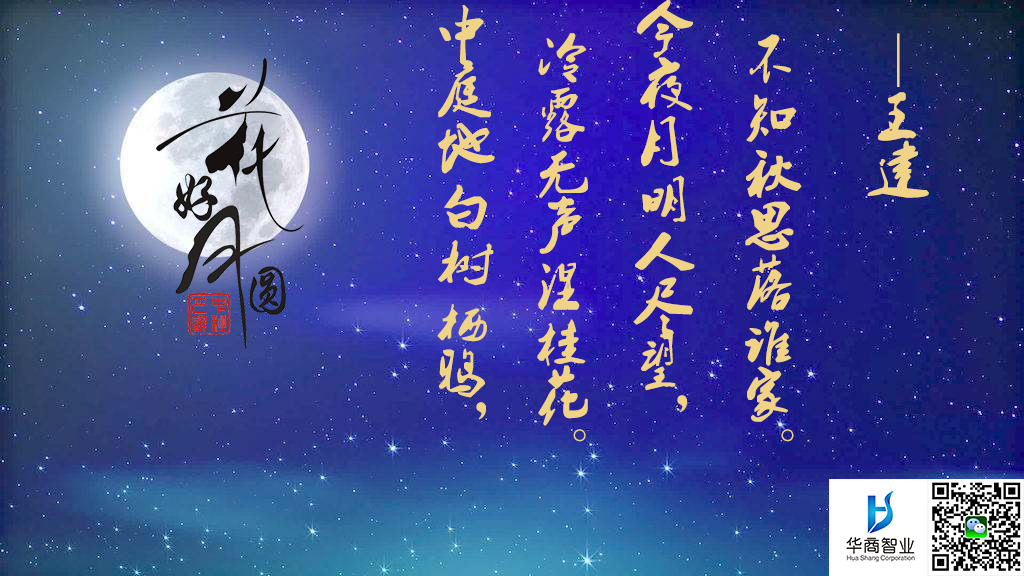 花好月圆
中庭地白树栖鸦，
冷露无声湿桂花。
今夜月明人尽望，
不知秋思落谁家。
——王建
华商智业
Hua Shang Corporation